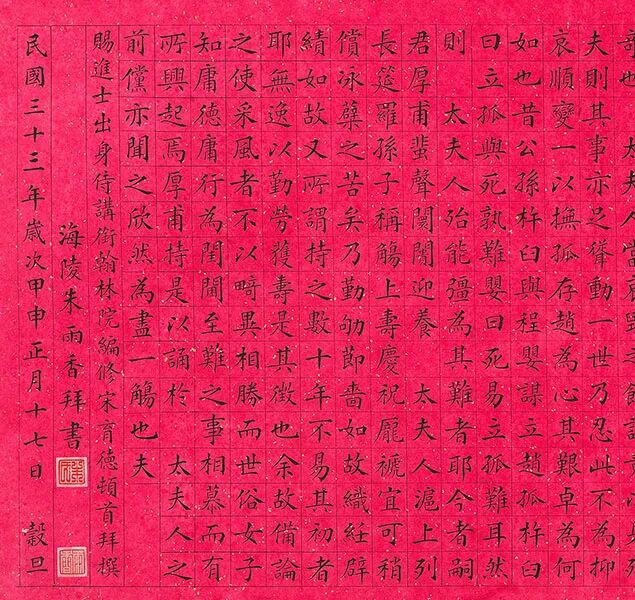 夫則其事亦足聳動一世乃忍此不為抑
哀順變一以撫孤存趙為心其艱卓為何
如也昔公孫杵臼與程嬰謀立趙孤杵臼
曰立孤與死孰難嬰曰死易立孤難耳然
則　太夫人殆能彊為其難者耶今者嗣
君厚甫蜚聲闤闠迎養　太夫人滬上列
長筵羅孫子稱觴上壽慶祝龐禠宜可稍
償冰蘗之苦矣乃勤劬節嗇如故織絍辟
績如故又所謂持之數十年不易其初者
耶無逸以勤勞獲壽是其徵也余故備論
之使采風者不以畸異相勝而世俗女子
知庸德庸行為閨閫至難之事相慕而有
所興起焉厚甫持是以誦於　太夫人之
前儻亦聞之欣然為盡一觴也夫
賜進士出身侍講銜翰林院編修宋育德頓首拜撰
海陵朱雨香拜書
民國三十三年歲次甲申正月十七日　穀旦